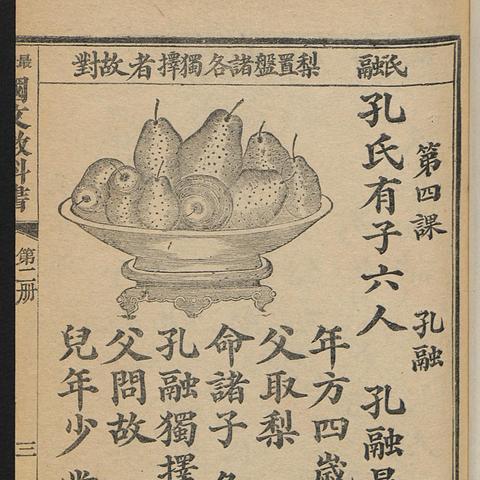 氏融 梨置盤諸各獨擇者故對
第四課 孔融
孔氏有子六人 孔融
年方四歲
父取梨
命諸子
孔融獨擇
父問故
兒年少
最
國文教科書
第二册
三